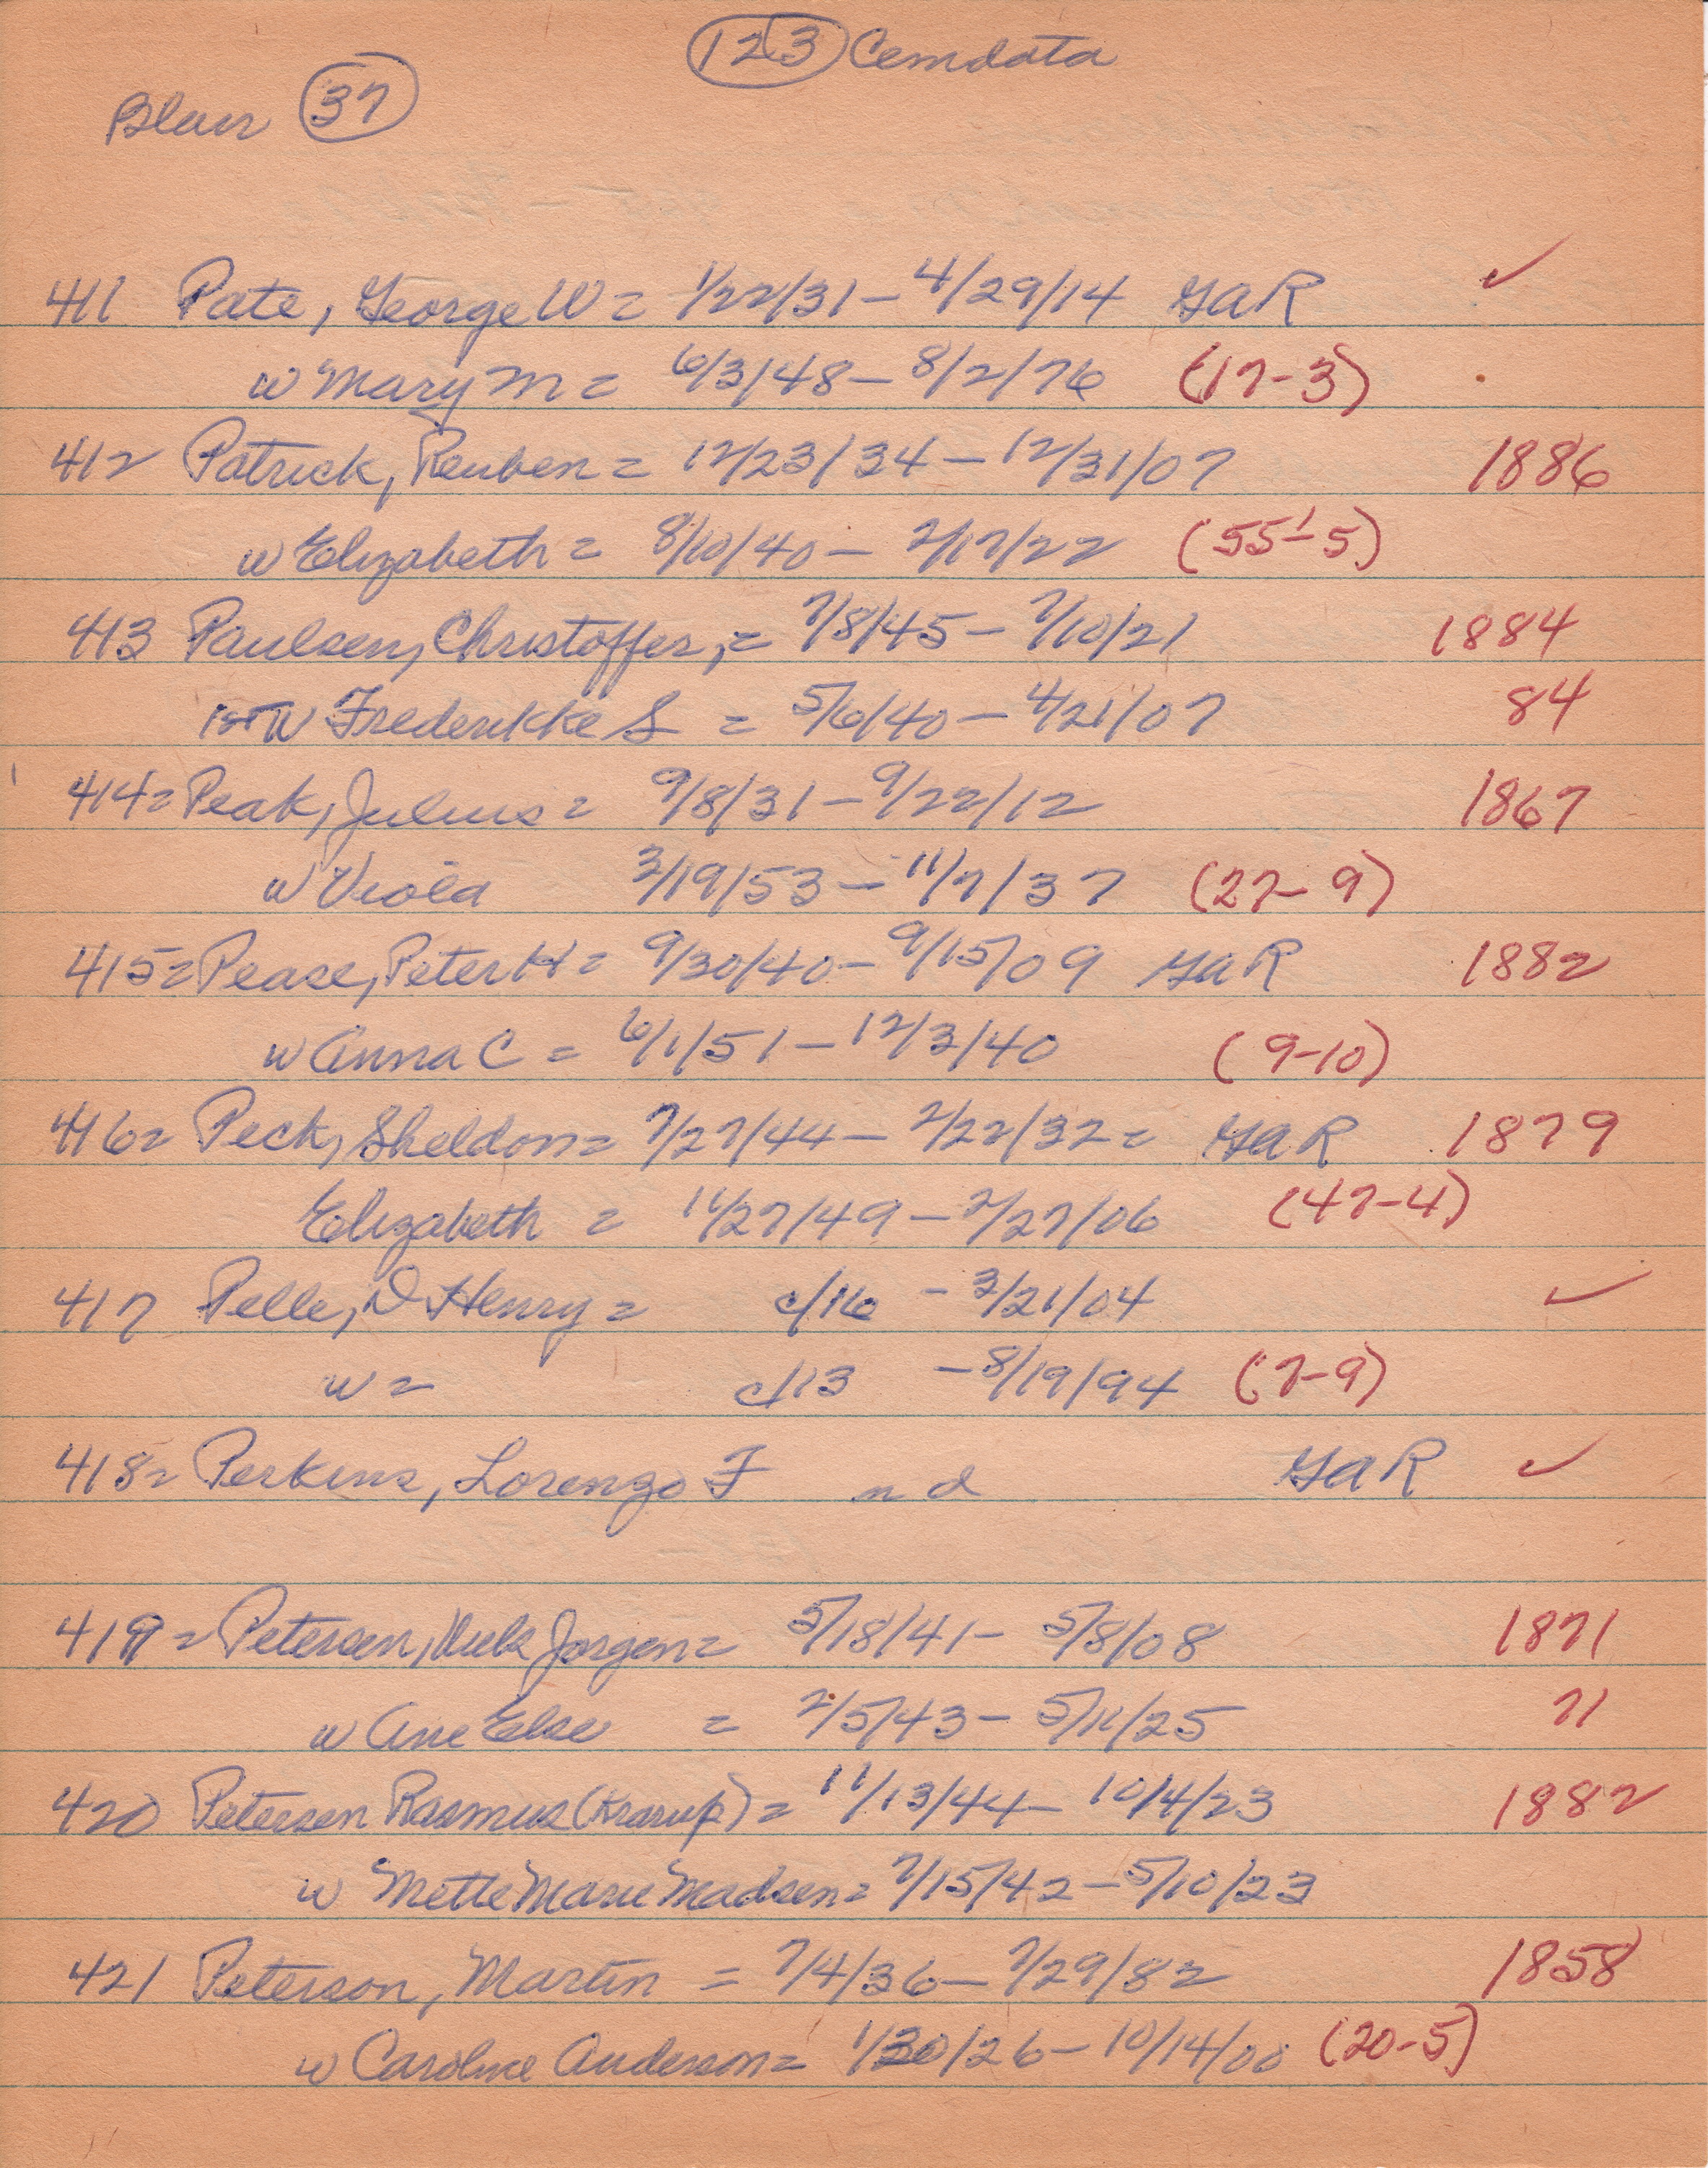 123 Cemdata
Blair 37
411 Pate, George W = 1/22/31 – 4/29/14 GAR ✓
w Mary M = 6/3/48 – 8/2/76 (17-3)
412 Patrick, Reuben = 12/23/34 – 12/31/07 1886
w Elizabeth = 8/10/40 – 2/17/22 (55-5)
413 Paulsen, Christoffer, = 7/8/45 – 7/10/21 1884
1st W Frederikke S = 5/6/40 – 4/21/07 84
414 = Peak, Julius = 9/8/31 – 9/22/12 1867
w Viola 3/19/53 – 11/7/37 (27-9)
415 = Pease, Peter H = 9/30/40 – 9/15/09 GAR 1882
w Anna C = 6/1/51 – 12/3/40 (9-10)
416 = Peck, Sheldon = 7/27/44 – 2/22/32 = GAR 1879
Elizabeth = 11/27/49 – 2/27/06 (47-4)
417 Pelle, D Henry = c/16 – 3/21/04 ✓
w = c/13 – 8/19/94 (7-9)
418 = Perkins, Lorenzo F n d GAR ✓
419 = Petersen, Jorgen = 5/18/41 – 5/8/08 1871
w Ane Else = 2/5/43 – 5/11/25 71
420 Petersen Rasmus (Krarup) = 11/13/44 – 10/4/23 1882
w Mette Marie Madsen = 7/15/42 – 5/10/23
421 Peterson, Martin = 7/4/36 – 7/29/82 1858
w Caroline Anderson = 1/30/26 – 10/14/00 (20-5)